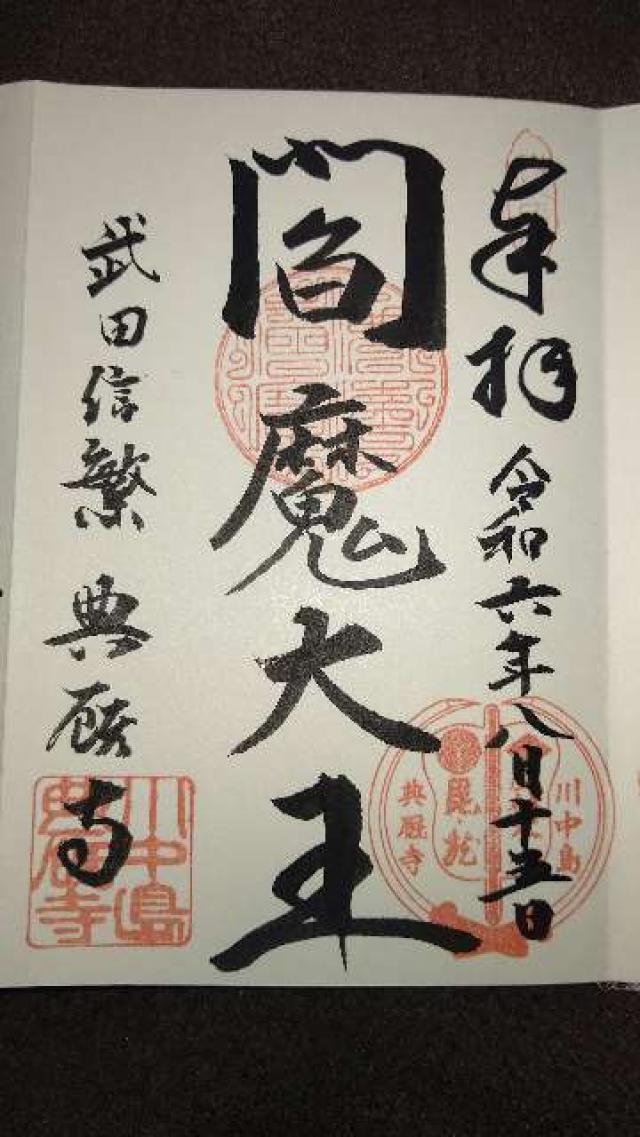 奉拝 令和六年八月十五日
閻魔大王
武田信繁 典厩寺
川中島
典厩寺
川中島
典厩寺